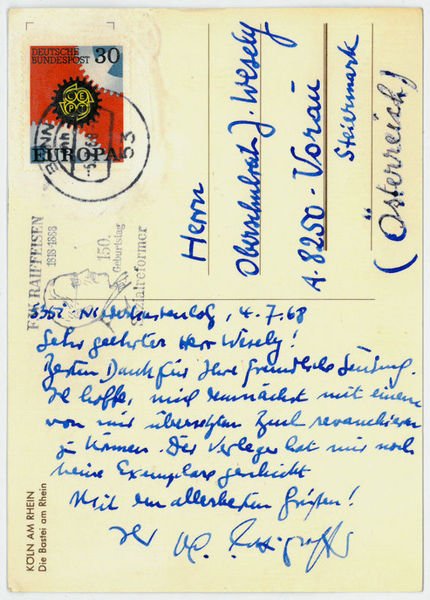 DEUTSCHE
BUNDESPOST 30
CEPT
EUROPA
BONN
53
F.W. RAIFFEISEN
1818-1888
150.
Geburtstag
Sozialreformer
Herrn
Oberschulrat J. Wesely
A-8250-Vorau
Steiermark
(Österreich)
4-7-68
Sehr geehrter Herr Wesely!
Besten Dank für Ihre freundliche Sendung.
Ich hoffe, mich demnächst mit einem
von mir übersetzten Buch revanchieren
zu können. Der Verleger hat mir noch
keine Exemplare geschickt
Mit den allerbesten Grüßen!
Ihr
KÖLN AM RHEIN
Die Bastei am Rhein